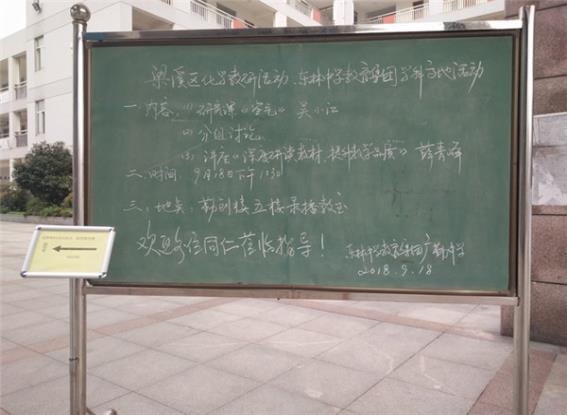 梁溪区化学教研活动、东林中学教育集团学科主地活动
一.内容:(1)研究课《空气》 吴小江
(2)分组讨论
(3)讲座《深度研读教材,提升教学品质》 薛青峰
二.时间:9月18日下午1:30
三.地点:勤创楼五楼录播教室
欢迎各位同仁莅临指导!
东林中学教育集团广勤中学
2018.9.18